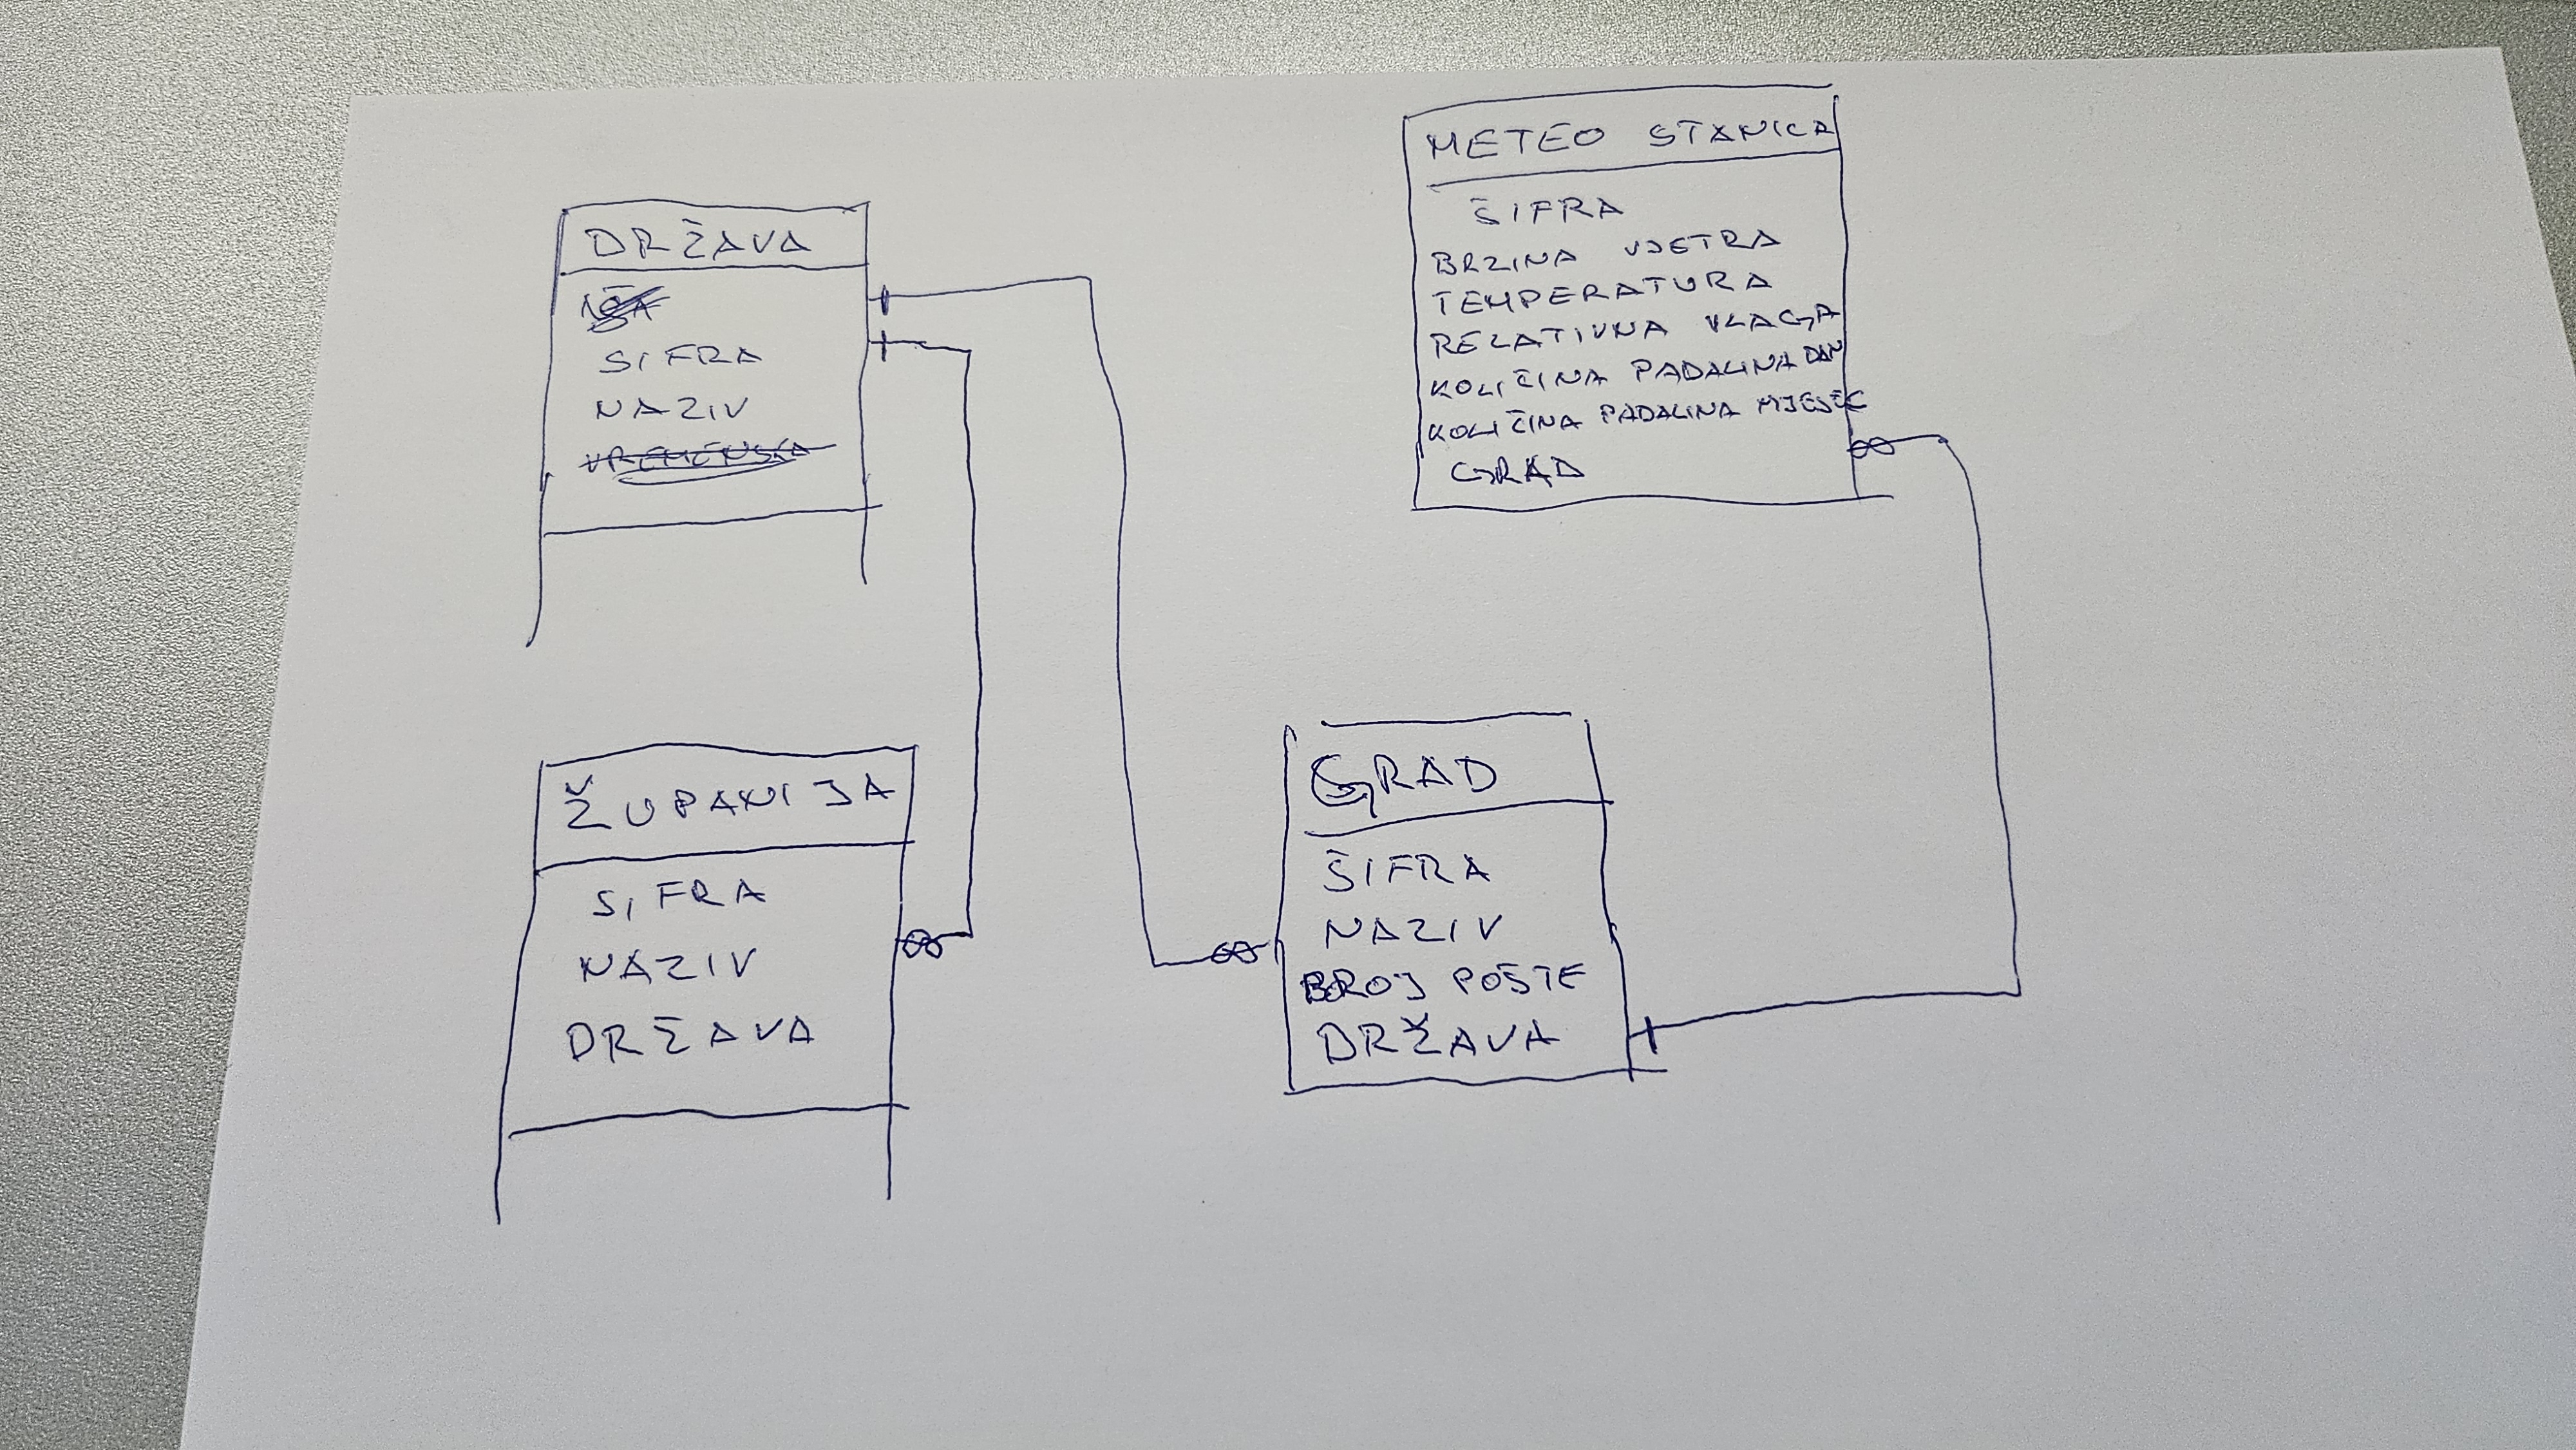 DRŽAVA
ŠIFRA
NAZIV
METEO STANICA
ŠIFRA
BRZINA VJETRA
TEMPERATURA
RELATIVNA VLAGA
KOLIČINA PADALINA DAN
KOLIČINA PADALINA MJESEC
GRAD
ŽUPANIJA
ŠIFRA
NAZIV
DRŽAVA
GRAD
ŠIFRA
NAZIV
BROJ POŠTE
DRŽAVA